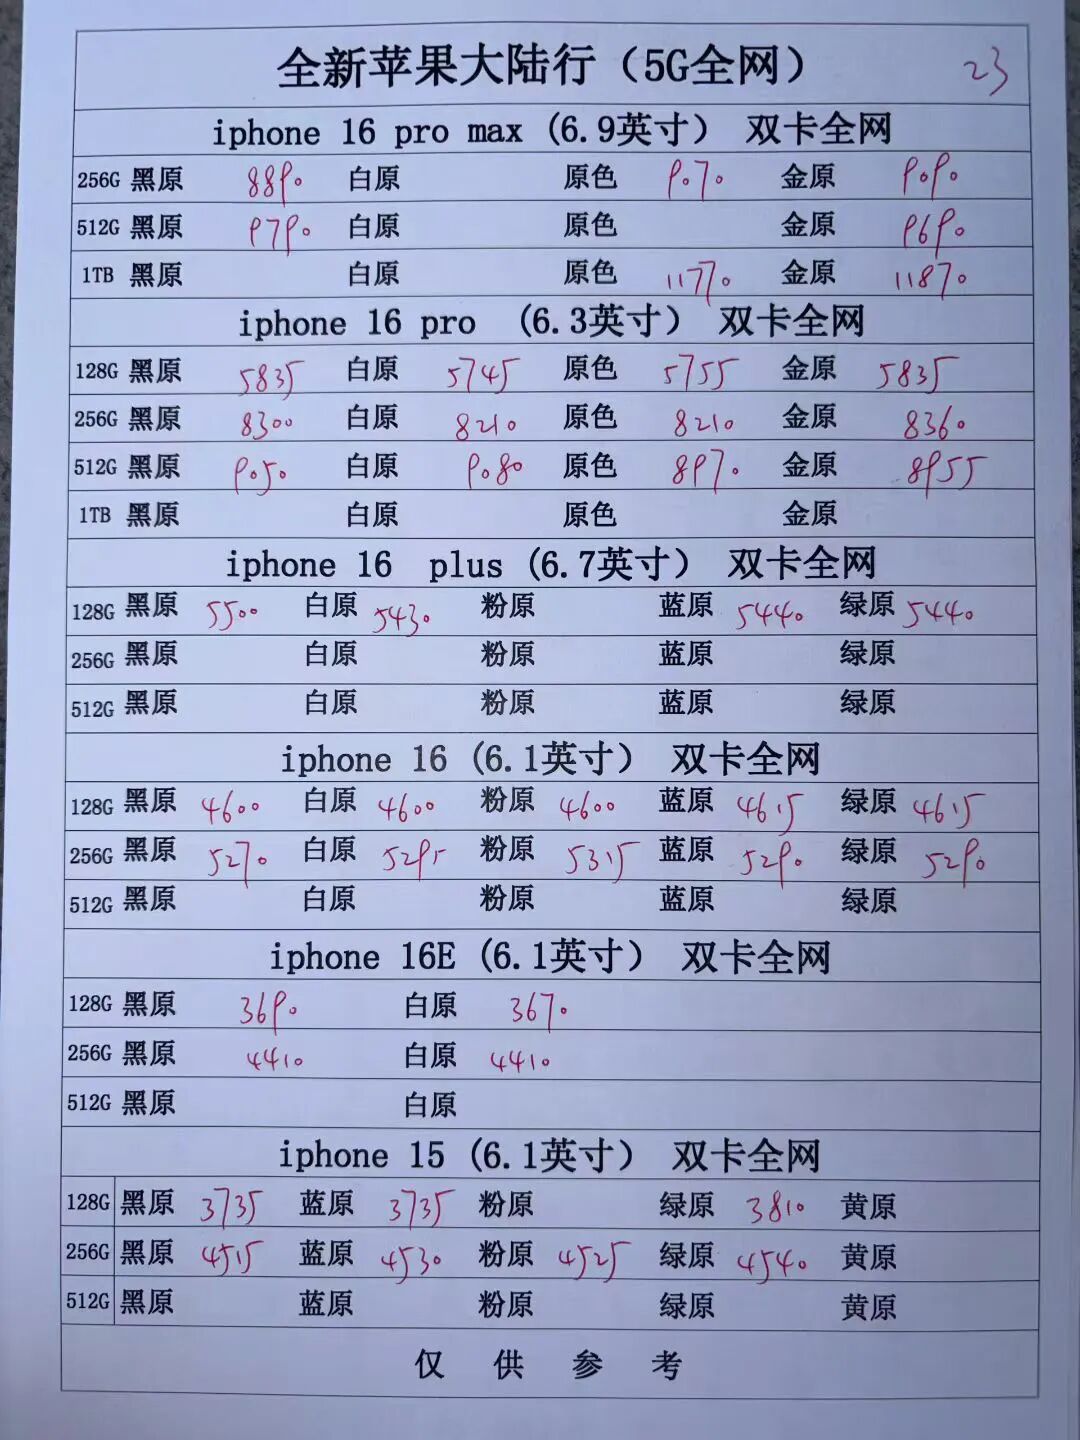 全新苹果大陆行（5G全网） 23
iphone 16 pro max (6.9英寸） 双卡全网
256G 黑原 8890 白原 原色 9070 金原 9090
512G 黑原 9790 白原 原色 金原 9690
1TB 黑原 白原 原色 11770 金原 11870
iphone 16 pro （6.3英寸） 双卡全网
128G 黑原 5835 白原 5745 原色 5755 金原 5835
256G 黑原 8300 白原 8210 原色 8210 金原 8360
512G 黑原 9050 白原 9080 原色 8970 金原 8955
1TB 黑原 白原 原色 金原
iphone 16 plus (6.7英寸） 双卡全网
128G 黑原 5500 白原 5430 粉原 蓝原 5440 绿原 5440
256G 黑原 白原 粉原 蓝原 绿原
512G 黑原 白原 粉原 蓝原 绿原
iphone 16 (6.1英寸） 双卡全网
128G 黑原 4600 白原 4600 粉原 4600 蓝原 4615 绿原 4615
256G 黑原 5270 白原 5295 粉原 5315 蓝原 5290 绿原 5290
512G 黑原 白原 粉原 蓝原 绿原
iphone 16E (6.1英寸） 双卡全网
128G 黑原 3690 白原 3670
256G 黑原 4410 白原 4410
512G 黑原 白原
iphone 15 (6.1英寸） 双卡全网
128G 黑原 3735 蓝原 3735 粉原 绿原 3810 黄原
256G 黑原 4515 蓝原 4530 粉原 4525 绿原 4540 黄原
512G 黑原 蓝原 粉原 绿原 黄原
仅 供 参 考